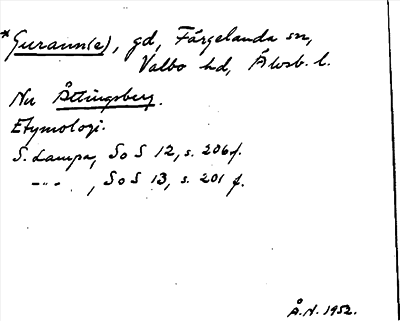 *Gurann(e), gd, Färgelanda sn,
Valbo hd, Älvsb. l.
Nu Åttingsberg.
Etymologi.
S. Lampa, SoS 12, s. 206 f.
-"- , SoS 13, s. 201 f.
Å.N. 1952.